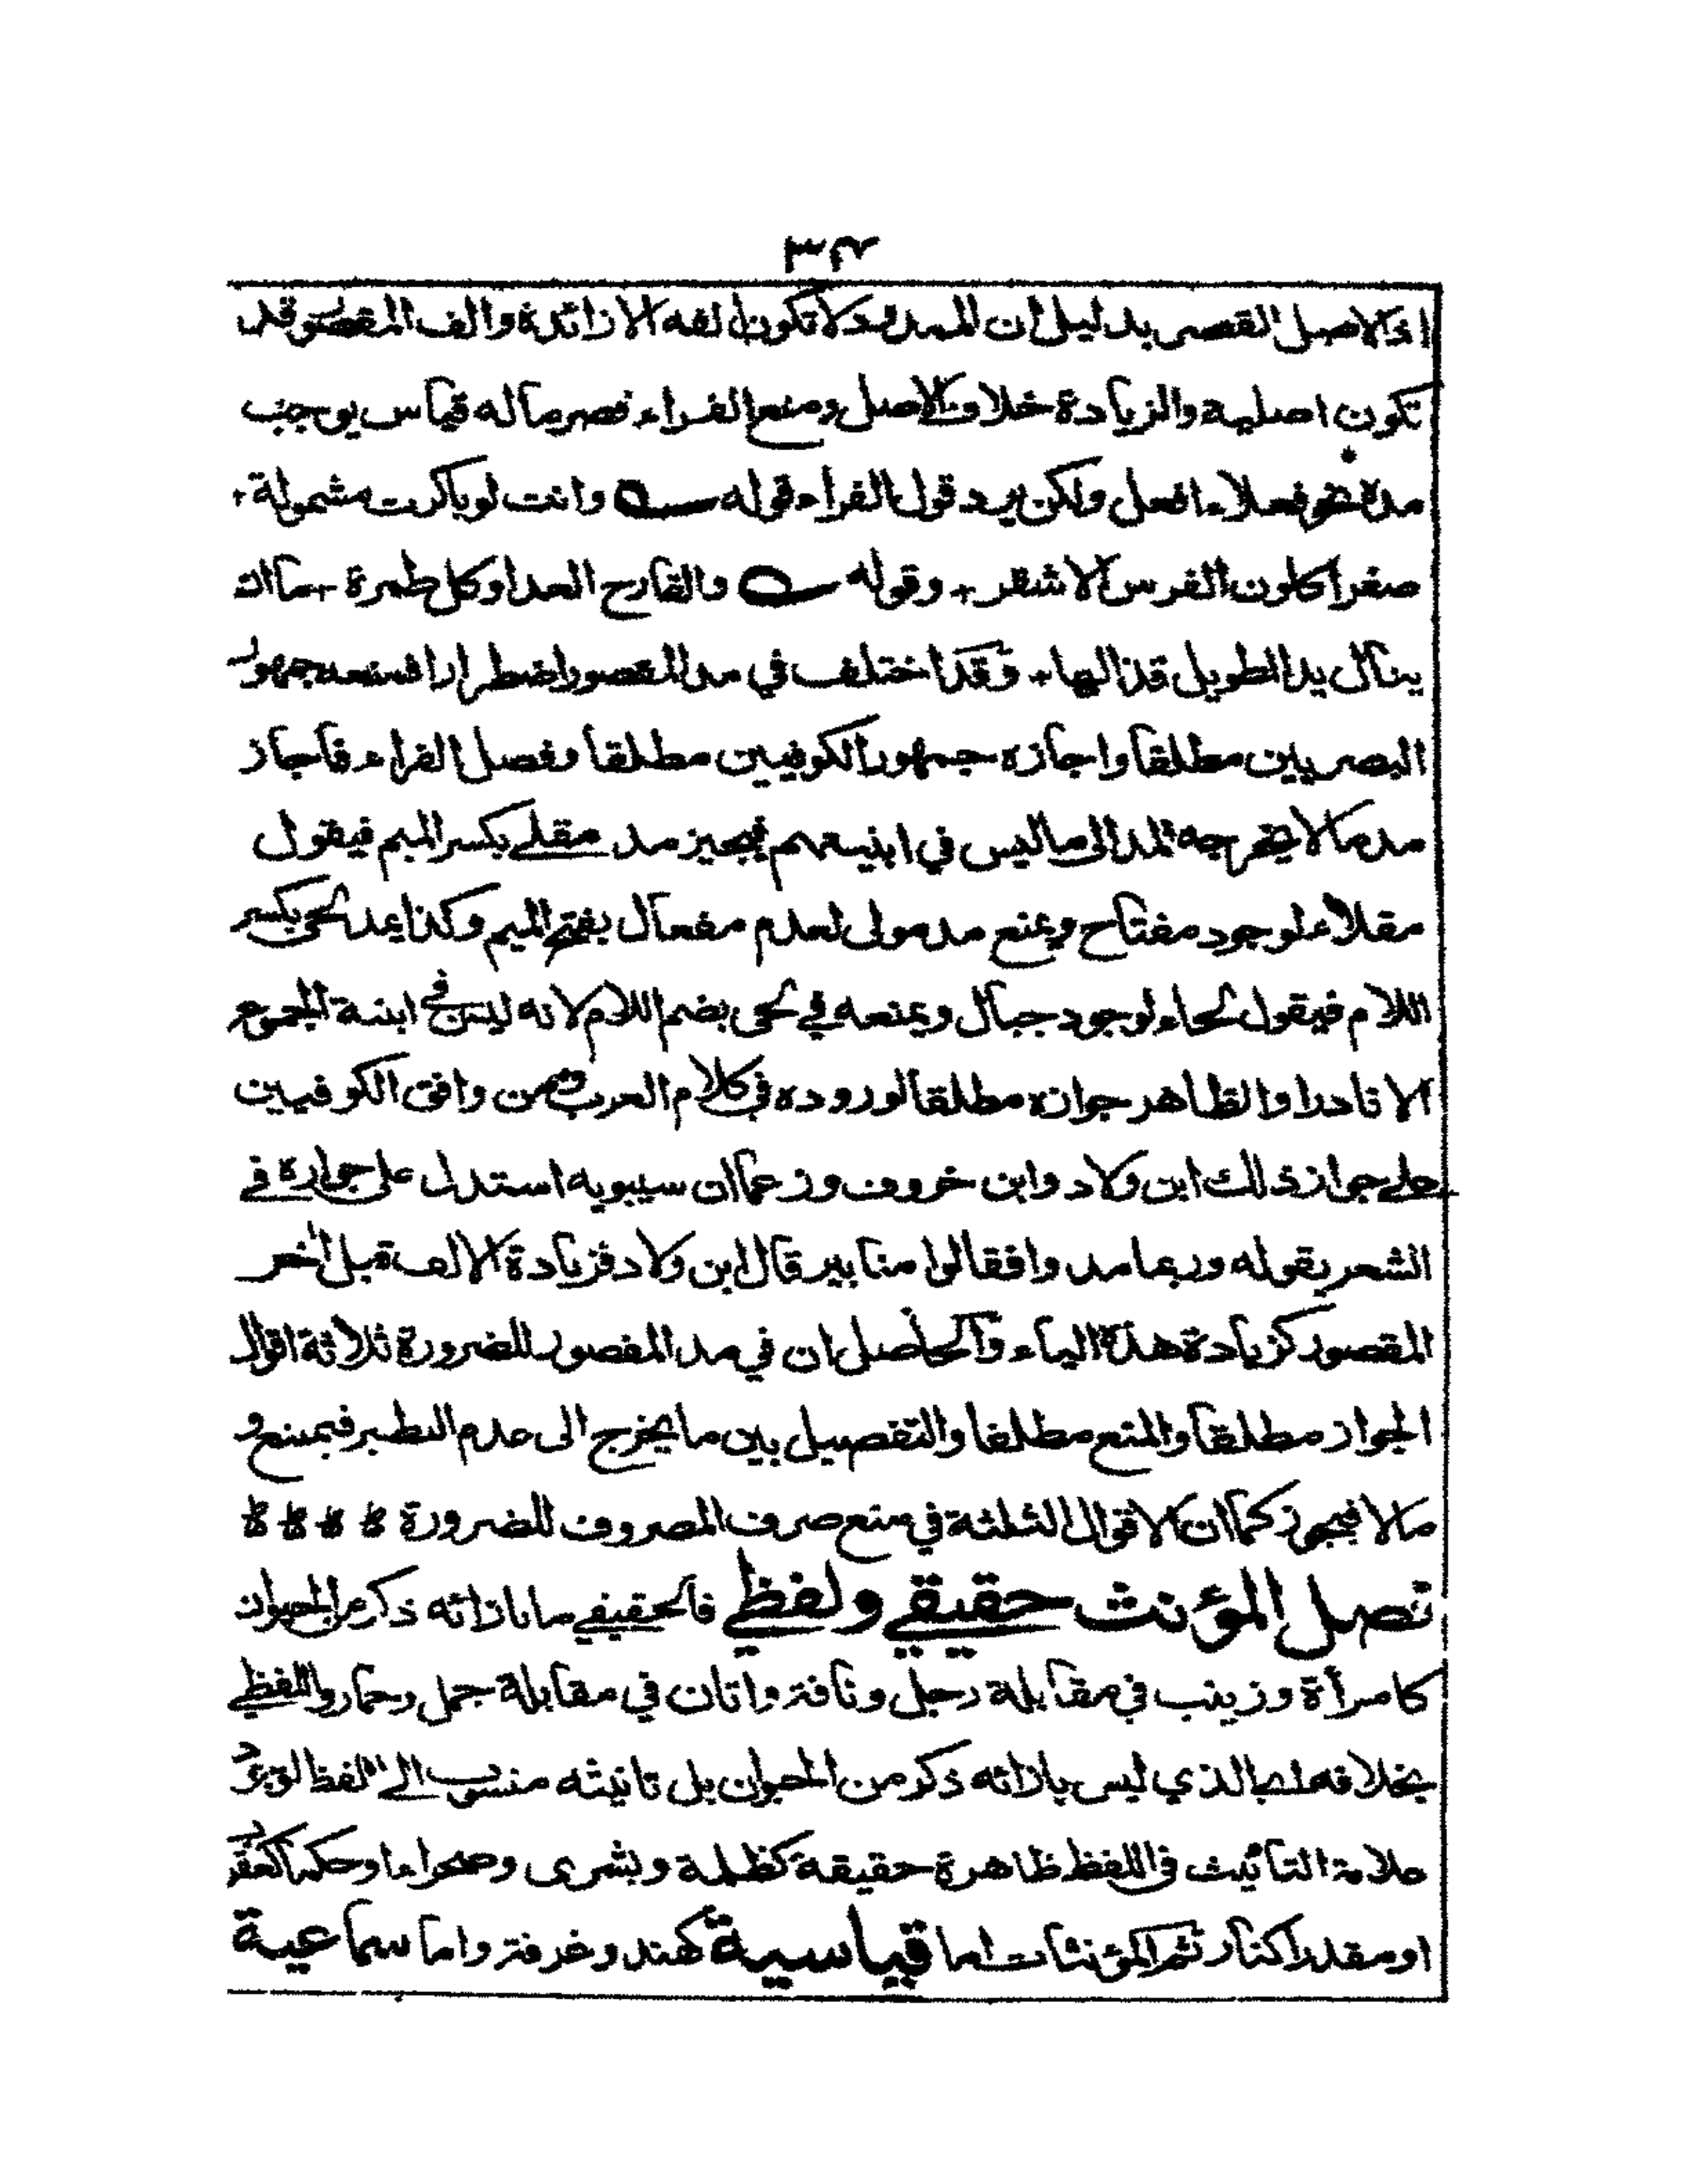 اذ الاصل القصر بدليل ان الممدود لا تكون الفه الا زائدة والف المقصور قد
تكون اصلية والزيادة خلاف الاصل ومنع الفراء قصر ما له قياس يوجب
مدة نحو فعلاء افعل ولكن يرد قول الفراء قوله وانت لو باكرت مشمولة +
صفرا كلون الفرس الاشقر + وقوله والقارح العدا وكل طمرة + ما ان
ينال يد الطويل قذالها + وقد اختلف في مد المقصور اضطرارا فمنعه جمهور
البصريين مطلقا واجازه جمهور الكوفيين مطلقا وفصل الفراء فاجاز
مد ما لا يخرجه المد الى ما ليس في ابنيتهم فيجيز مد مقلى بكسر الميم فيقول
مقلاء لوجود مفتاح ويمنع مد مولى لعدم مفعال بفتح الميم وكذا يمد لحى بكسر
اللام فيقول لحاء لوجود جبال ويمنعه في لحى بضم اللام لانه ليس في ابنية الجموع
الا نادرا والظاهر جوازه مطلقا لوروده في كلام العرب وممن وافق الكوفيين
على جواز ذلك ابن ولاد وابن خروف وزعما ان سيبويه استدل على جوازه في
الشعر بقوله وربما مدوا فقالوا منابير قال ابن ولاد فزيادة الالف قبل اخر
المقصور كزيادة هذه الياء والحاصل ان في مد المقصور للضرورة ثلاثة اقوال
الجواز مطلقا والمنع مطلقا والتفصيل بين ما يخرج الى عدم النظير فيمنع و
ما لا فيجوز كما ان الاقوال الثلثة في منع صرف المصروف للضرورة
فصل المؤنث حقيقي ولفظي فالحقيقي ما بازائه ذكر من الحيوان
كامرأة وزينب في مقابلة رجل وناقة واتان في مقابلة جمل وحمار واللفظي
بخلافه اي الذي ليس بازائه ذكر من الحيوان بل تانيثه منسوب الى اللفظ لوجود
علامة التأنيث في اللفظ ظاهرة حقيقة كظلمة وبشرى وصحراء او حكما كعقرب
او مقدرا كنار ثم المؤنثات اما قياسية كهند وغرفة واما سماعية